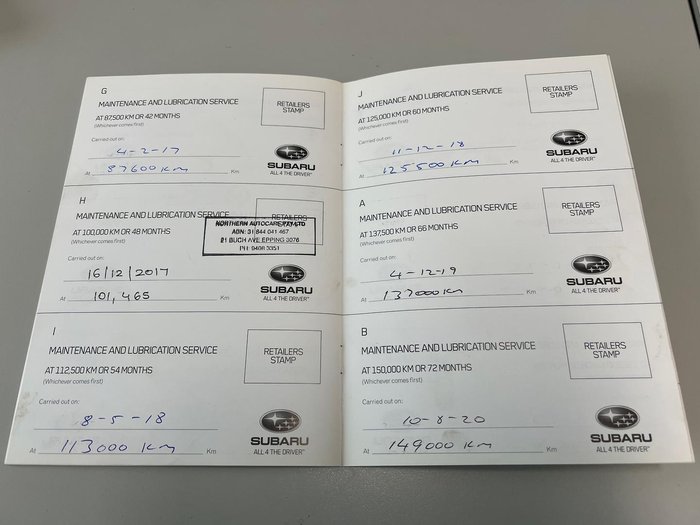 G
MAINTENANCE AND LUBRICATION SERVICE
AT 87,500 KM OR 42 MONTHS
(Whichever comes first)
RETAILERS
STAMP
Carried out on:
4-2-17
At 87600 Km Km
SUBARU
ALL 4 THE DRIVER™
H
MAINTENANCE AND LUBRICATION SERVICE
AT 100,000 KM OR 48 MONTHS
(Whichever comes first)
RETAILERS
STAMP
NORTHERN AUTOCARE PTY LTD
ABN: 31 644 041 467
21 BUCH AVE EPPING 3076
PH: 9408 3351
Carried out on:
16/12/2017
At 101,465 Km
SUBARU
ALL 4 THE DRIVER™
I
MAINTENANCE AND LUBRICATION SERVICE
AT 112,500 KM OR 54 MONTHS
(Whichever comes first)
RETAILERS
STAMP
Carried out on:
8-5-18
At 113000 Km Km
SUBARU
ALL 4 THE DRIVER™
J
MAINTENANCE AND LUBRICATION SERVICE
AT 125,000 KM OR 60 MONTHS
(Whichever comes first)
RETAILERS
STAMP
Carried out on:
11-12-18
At 125500 Km Km
SUBARU
ALL 4 THE DRIVER™
A
MAINTENANCE AND LUBRICATION SERVICE
AT 137,500 KM OR 66 MONTHS
(Whichever comes first)
RETAILERS
STAMP
Carried out on:
4-12-19
At 137000 Km Km
SUBARU
ALL 4 THE DRIVER™
B
MAINTENANCE AND LUBRICATION SERVICE
AT 150,000 KM OR 72 MONTHS
(Whichever comes first)
RETAILERS
STAMP
Carried out on:
10-8-20
At 149000 Km Km
SUBARU
ALL 4 THE DRIVER™